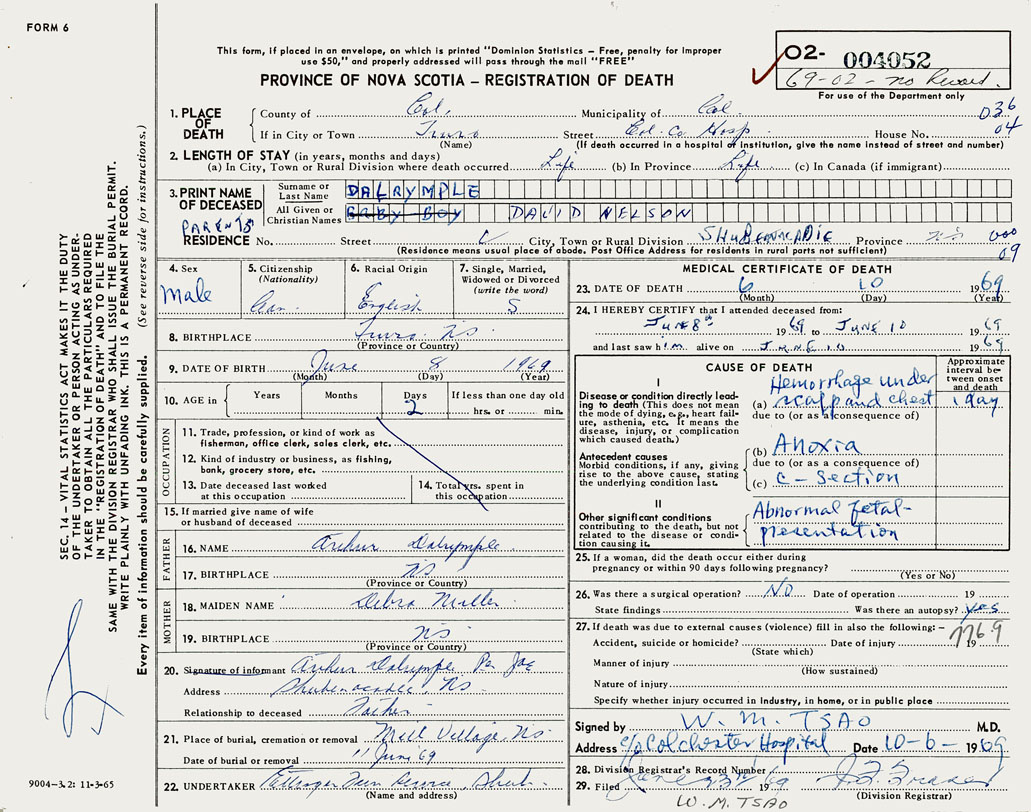 FORM 6
This form, if placed in an envelope, on which is printed "Dominion Statistics – Free, penalty for improper
use $50," and properly addressed will pass through the mail "FREE"
PROVINCE OF NOVA SCOTIA – REGISTRATION OF DEATH
O2- 004052
69-02-no Record.
For use of the Department only
1. PLACE OF DEATH
County of Col. Municipality of Col. 036
If in City or Town Truro Street Col. Co. Hosp House No. 04
(Name) (If death occurred in a hospital or institution, give the name instead of street and number)
2. LENGTH OF STAY (in years, months and days)
(a) In City, Town or Rural Division where death occurred Life (b) In Province Life (c) In Canada (if immigrant)
3. PRINT NAME OF DECEASED
Surname or Last Name DALRYMPLE
All Given or Christian Names BABY BOY DAVID NELSON
PARENTS
RESIDENCE No. Street City, Town or Rural Division SHUBENACADIE Province NS 000
(Residence means usual place of abode. Post Office Address for residents in rural parts not sufficient) 09
4. Sex Male
5. Citizenship (Nationality) Can.
6. Racial Origin English
7. Single, Married, Widowed or Divorced (write the word) S
8. BIRTHPLACE Truro NS
(Province or Country)
9. DATE OF BIRTH June 8 1969
(Month) (Day) (Year)
10. AGE in Years Months Days 2 If less than one day old
hrs. or min.
OCCUPATION
11. Trade, profession, or kind of work as
fisherman, office clerk, sales clerk, etc.
12. Kind of industry or business, as fishing,
bank, grocery store, etc.
13. Date deceased last worked
at this occupation
14. Total yrs. spent in
this occupation
15. If married give name of wife
or husband of deceased
FATHER
16. NAME Arthur Dalrymple
17. BIRTHPLACE NS
(Province or Country)
MOTHER
18. MAIDEN NAME Debra Miller
19. BIRTHPLACE NS
(Province or Country)
20. Signature of informant Arthur Dalrymple Per
Address Shubenacadie, NS
Relationship to deceased Father
21. Place of burial, cremation or removal Mill Village, NS
Date of burial or removal 11 June 69
22. UNDERTAKER
(Name and address)
MEDICAL CERTIFICATE OF DEATH
23. DATE OF DEATH 6 10 1969
(Month) (Day) (Year)
24. I HEREBY CERTIFY that I attended deceased from:
JUNE 8th 1969 to JUNE 10 1969
and last saw him alive on JUNE 10 1969
CAUSE OF DEATH
Approximate interval between onset and death
I
Disease or condition directly leading to death (This does not mean the mode of dying, e.g., heart failure, asthenia, etc. It means the disease, injury, or complication which caused death.)
(a) Hemorrhage under
scalp and chest 1 day
due to (or as a consequence of)
Antecedent causes
Morbid conditions, if any, giving rise to the above cause, stating the underlying condition last.
(b) Anoxia
due to (or as a consequence of)
(c) C-Section
II
Other significant conditions
contributing to the death, but not related to the disease or condition causing it.
Abnormal fetal-
presentation
25. If a woman, did the death occur either during
pregnancy or within 90 days following pregnancy?
(Yes or No)
26. Was there a surgical operation? NO Date of operation 19
State findings Was there an autopsy? yes
27. If death was due to external causes (violence) fill in also the following: – 776.9
Accident, suicide or homicide? Date of injury 19
(State which)
Manner of injury
(How sustained)
Nature of injury
Specify whether injury occurred in industry, in home, or in public place
Signed by W. M. TSAO M.D.
Address c/o Colchester Hospital Date 10-6- 1969
28. Division Registrar's Record Number
29. Filed June 23rd 1969
(Division Registrar)
W. M. TSAO
SEC. 14 – VITAL STATISTICS ACT MAKES IT THE DUTY
OF THE UNDERTAKER OR PERSON ACTING AS UNDER-
TAKER TO OBTAIN ALL THE PARTICULARS REQUIRED
IN THE "REGISTRATION OF DEATH" AND TO FILE THE
SAME WITH THE DIVISION REGISTRAR WHO SHALL ISSUE THE BURIAL PERMIT.
WRITE PLAINLY WITH UNFADING INK. THIS IS A PERMANENT RECORD.
Every item of information should be carefully supplied. (See reverse side for instructions.)
9004-3.2: 11-3-65